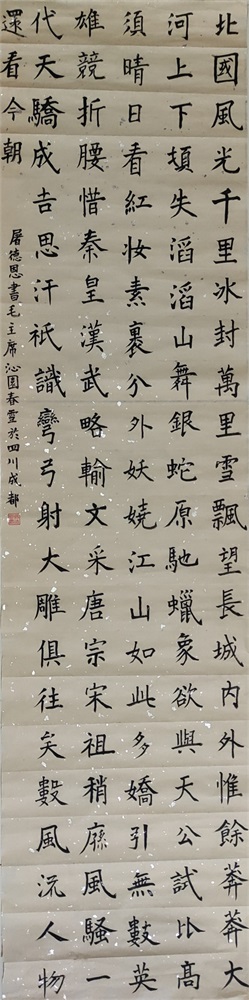 北國風光千里冰封萬里雪飄望長城内外惟餘莽莽大
河上下頓失滔滔山舞銀蛇原馳蠟象欲與天公試比高
須晴日看紅妆素裹分外妖嬈江山如此多嬌引無數英
雄競折腰惜秦皇漢武略輸文采唐宗宋祖稍遜風騷一
代天驕成吉思汗祇識彎弓射大雕俱往矣數風流人物
還看今朝
屠德思書毛主席沁園春雪於四川成都